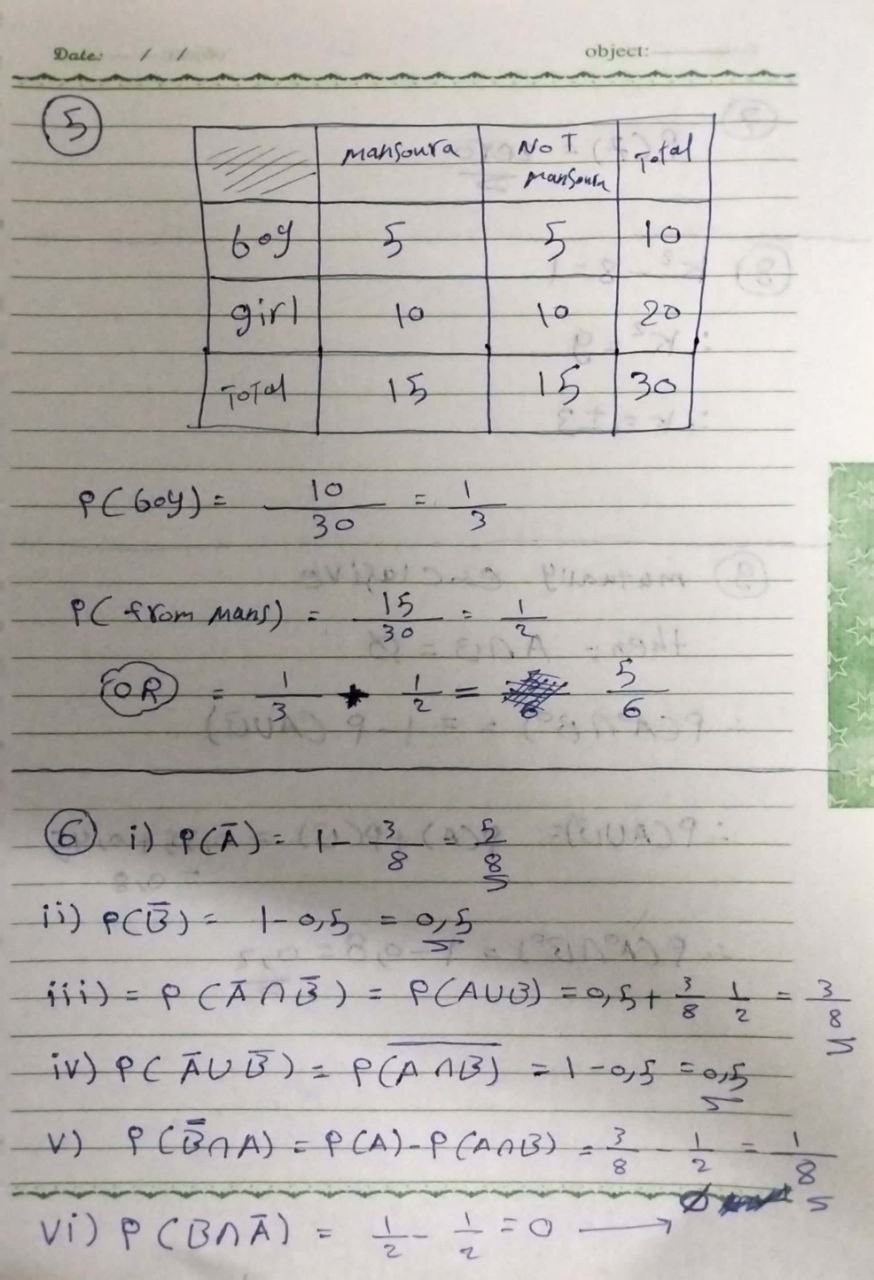 Date: / / object:
5
mansoura NOT mansoura Total
boy 5 5 10
girl 10 10 20
Total 15 15 30
P(boy) = 10/30 = 1/3
P(from mans) = 15/30 = 1/2
OR = 1/3 + 1/2 = 5/6
6 i) P(Ā) = 1 - 3/8 = 5/8
ii) P(B̄) = 1 - 0,5 = 0,5
iii) = P(Ā∩B̄) = P(A∪B) = 0,5 + 3/8 1/2 = 3/8
iv) P(Ā∪B̄) = P(A̅∩̅B̅) = 1 - 0,5 = 0,5
v) P(B̄∩A) = P(A) - P(A∩B) = 3/8 - 1/2 = 1/8
vi) P(B∩Ā) = 1/2 - 1/2 = 0 → Ø